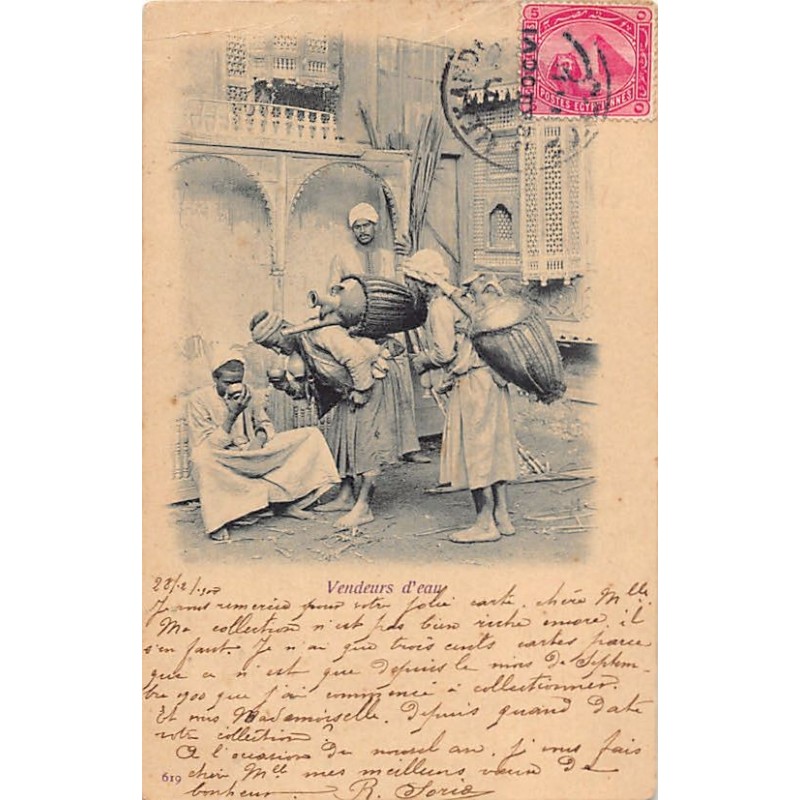 5
POSTES EGYPTIENNES
ALEXANDRI
Vendeurs d'eau
28/12/900
Je vous remercie pour votre jolie carte, chère Mlle.
Ma collection n'est pas bien riche encore, il
s'en faut. Je n'ai que trois cents cartes parce
que ce n'est que depuis le mois de Septem-
bre 900 que j'ai commencé à collectionner.
Et vous Mademoiselle, depuis quand date
votre collection?
A l'occasion du nouvel an, je vous fais
chère Mlle mes meilleurs vœux de
bonheur. R. Soria
619